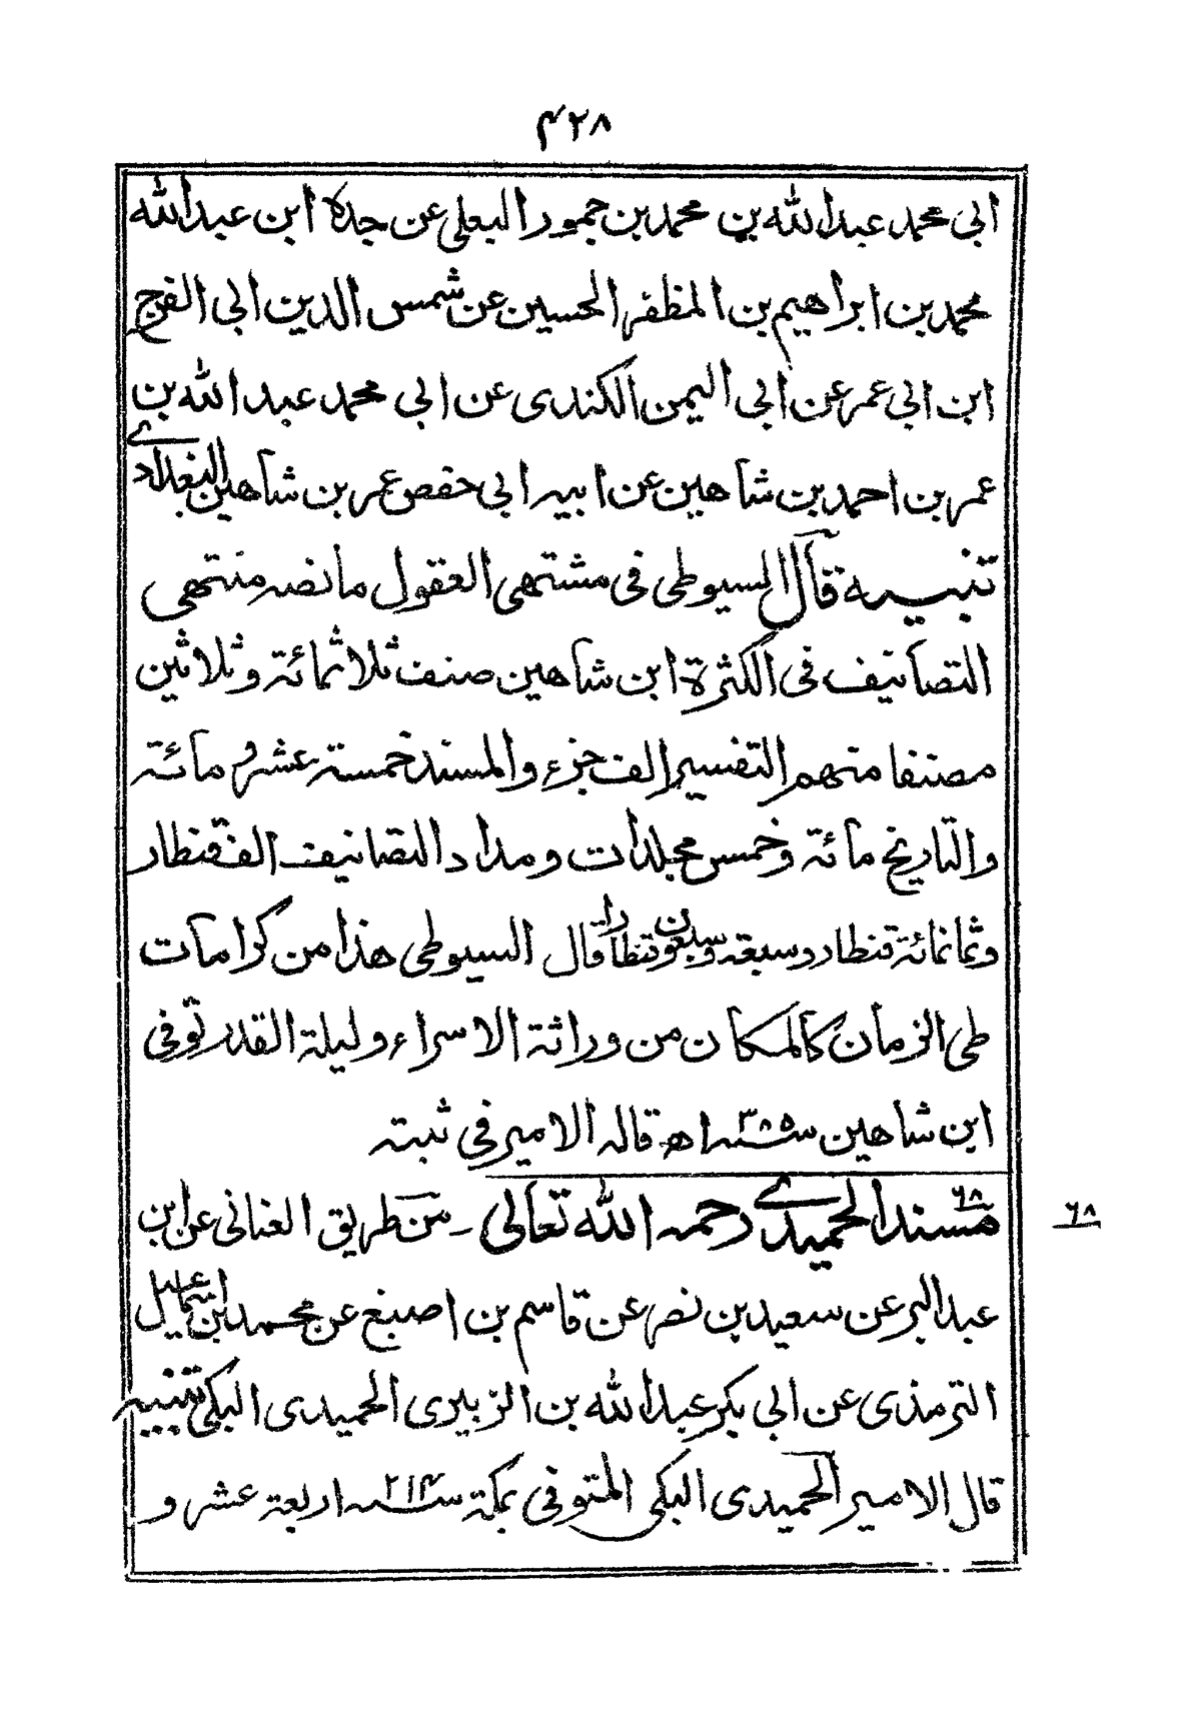 ۴۲۸
ابي محمد عبدالله بن محمد بن جمور البعلي عن جده ابن عبدالله
محمد بن ابراهيم بن المظفر الحسين عن شمس الدين ابي الفرج
ابن ابي عمر عن ابي اليمن الكندى عن ابي محمد عبد الله بن
عمر بن احمد بن شاهين عن ابيه ابي حفص عمر بن شاهين البغدادے
تنبيه قال السيوطى فى مشتهى العقول ما نصه منتهى
التصانيف فى الكثرة ابن شاهين صنف ثلاثمائة وثلاثين
مصنفا منهم التفسير الف جزء والمسند خمسة عشر ومائة
والتاريخ مائة وخمس مجلدات ومداد التصانيف الف قنطار
وثمانمائة قنطار وسبعة وسبعون قنطارا قال السيوطى هذا من كرامات
طى الزمان كالمكان من وراثة الاسراء وليلة القدر توفى
ابن شاهين سنه ۳۸۵ اھ قاله الامير فى ثبته
۶۸ مسند الحميدے رحمه الله تعالى - من طريق العنانى عن ابن
۶۸
عبد البر عن سعيد بن نصر عن قاسم بن اصبغ عن محمد بن اسماعيل
الترمذى عن ابي بكر عبدالله بن الزبيرى الحميدى البكى تنبيه
قال الامير الحميدى البكى المتوفى بمكة سنه ۲۱۴ اربعة عشر و